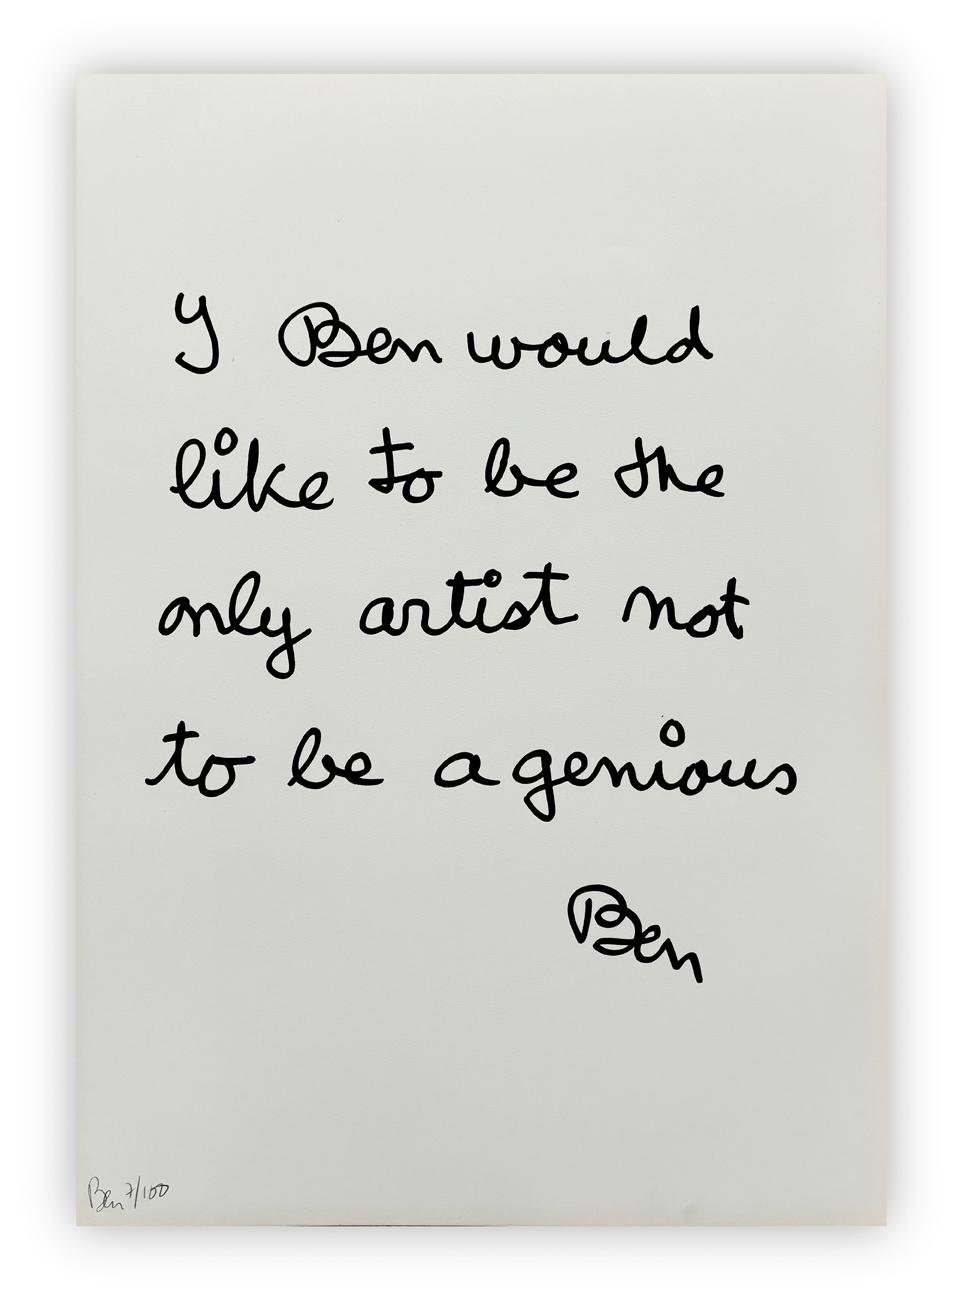 I Ben would
like to be the
only artist not
to be a genious
Ben
Ben 7/100